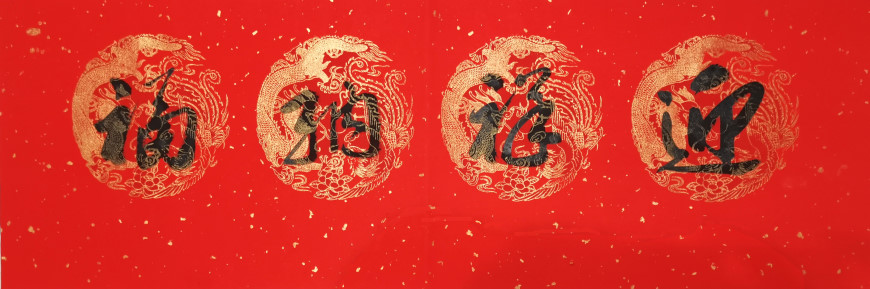 迎祥纳福